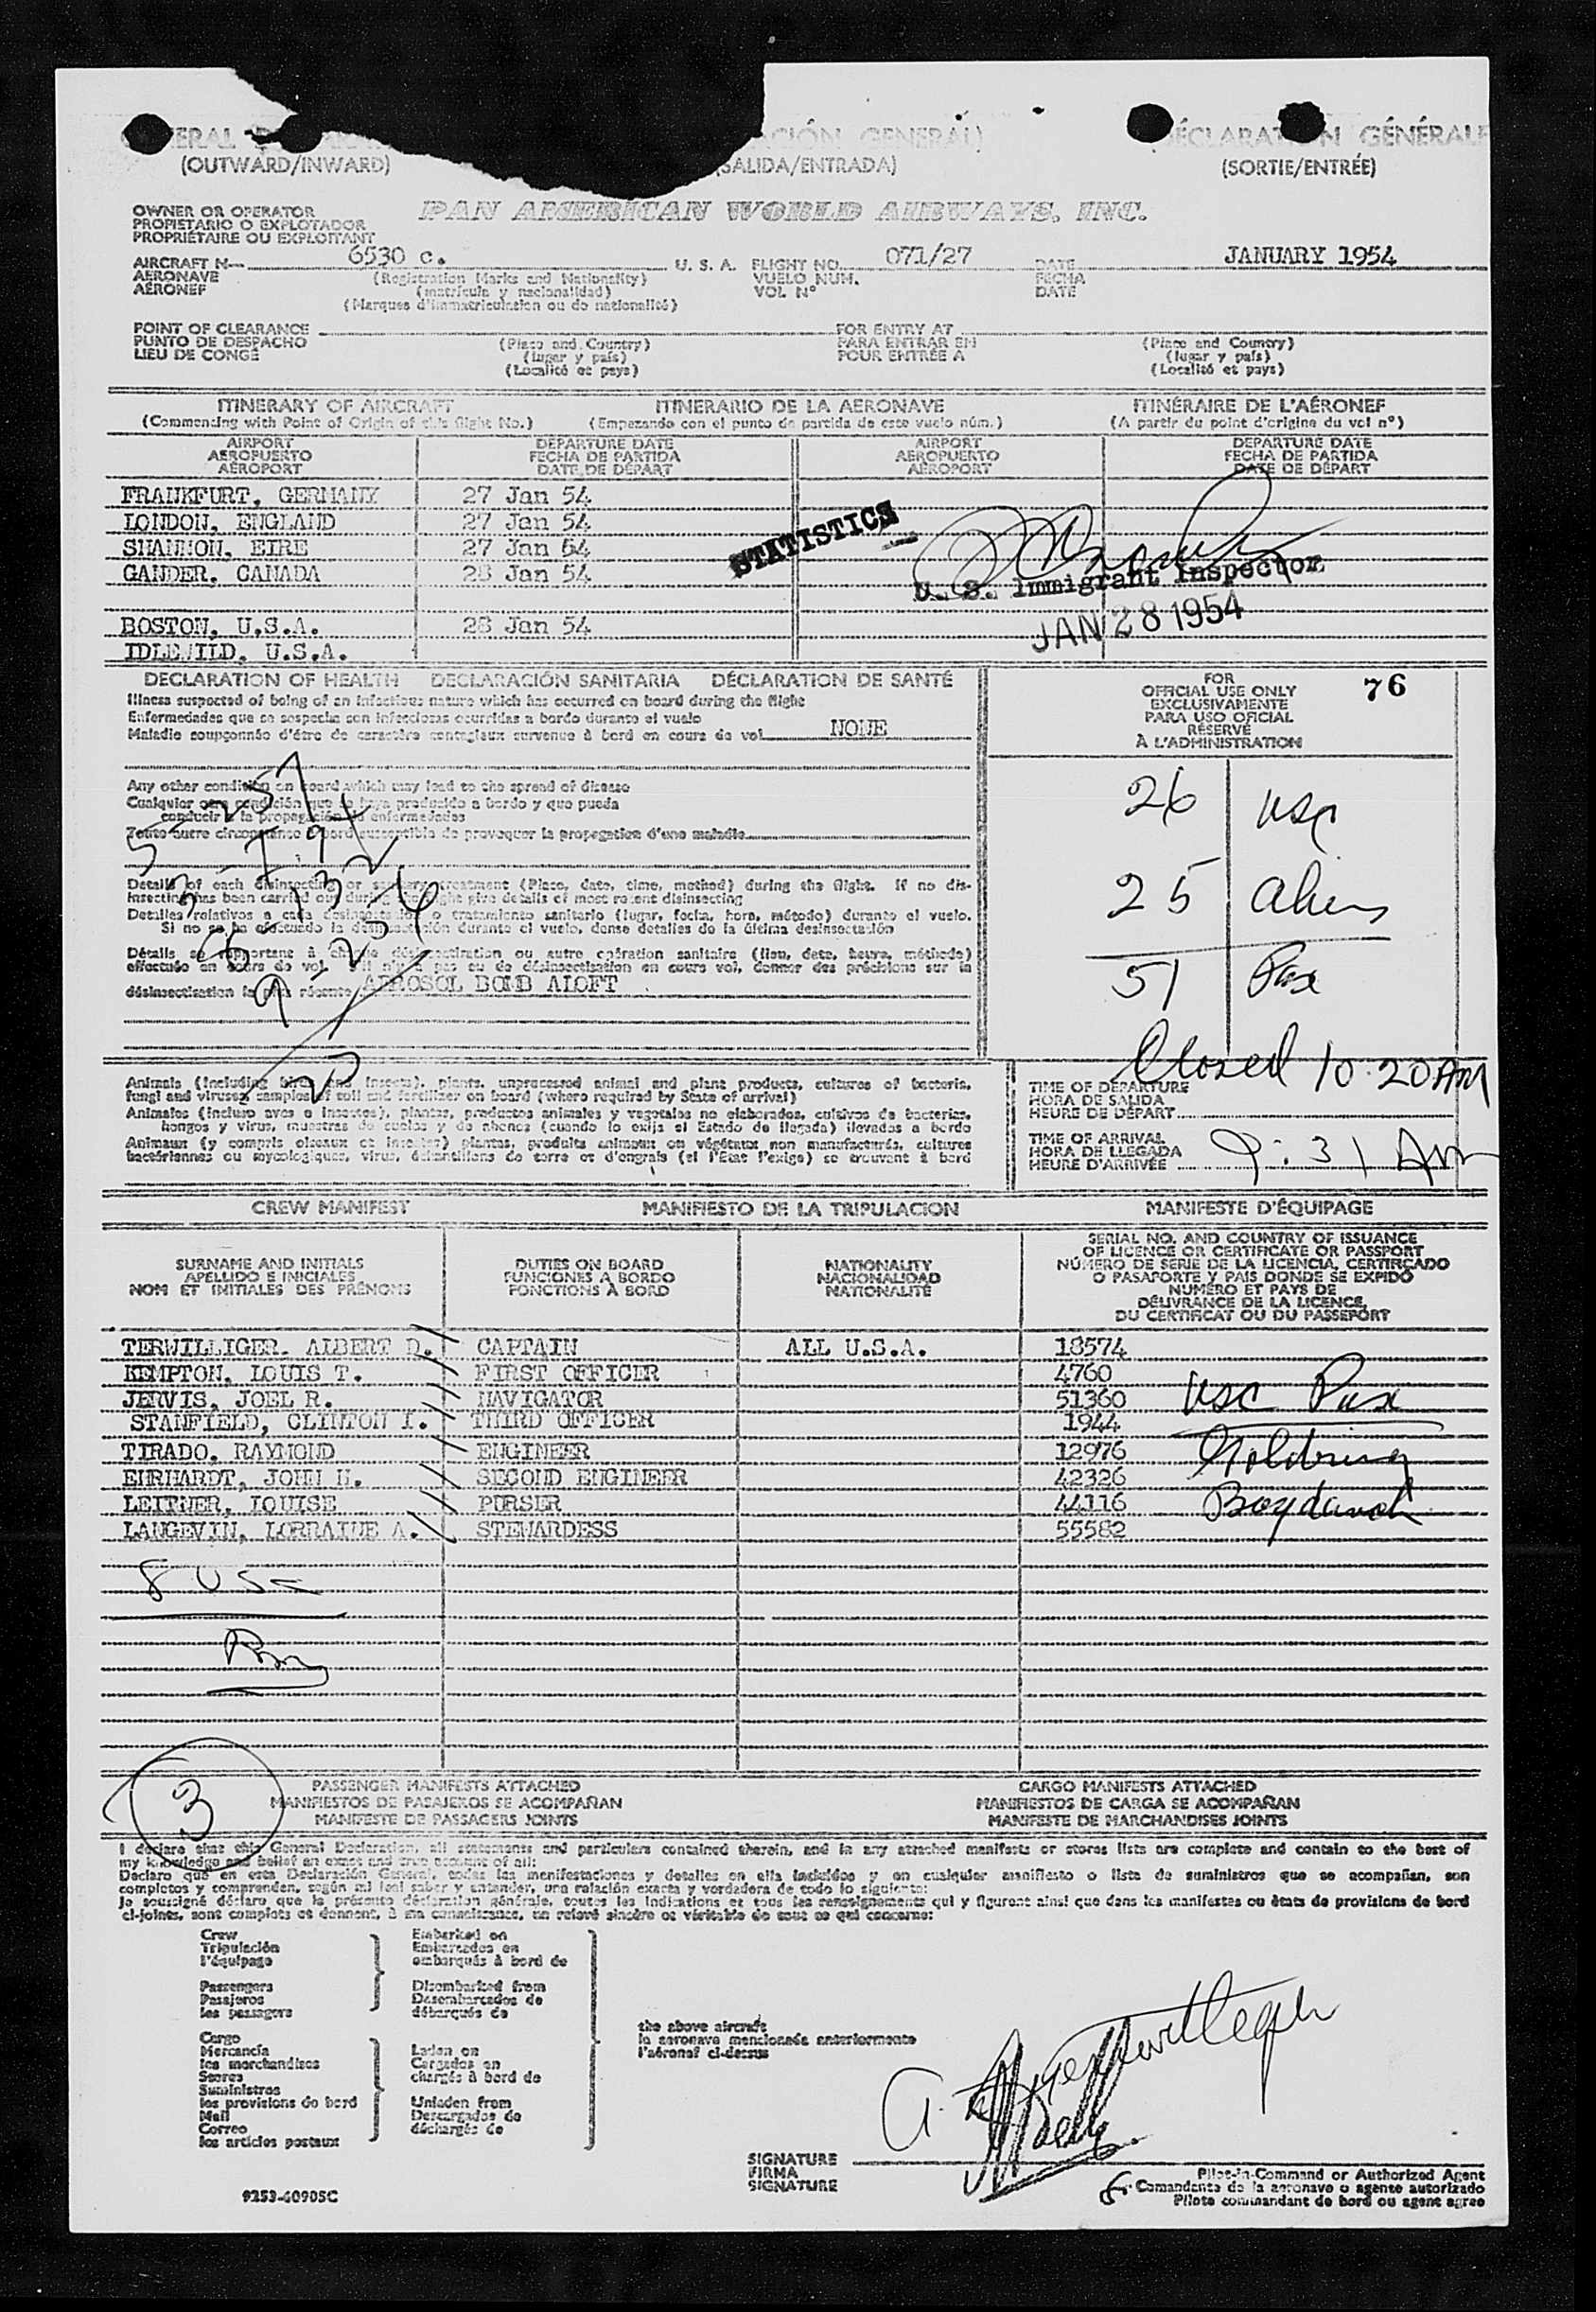 (OUTWARD/INWARD) SALIDA/ENTRADA) (SORTIE/ENTRÉE)
GENERAL) GÉNÉRALE
OWNER OR OPERATOR
PROPIETARIO O EXPLOTADOR
PROPRIÉTAIRE OU EXPLOITANT
PAN AMERICAN WORLD AIRWAYS, INC.
AIRCRAFT N 6530 c. U. S. A. FLIGHT NO. 071/27 DATE JANUARY 1954
AERONAVE (Registration Marks and Nationality) VUELO NUM. FECHA
AÉRONEF (matrícula y nacionalidad) VOL N° DATE
(Marques d'immatriculation ou de nationalité)
POINT OF CLEARANCE FOR ENTRY AT
PUNTO DE DESPACHO (Place and Country) PARA ENTRAR EN (Place and Country)
LIEU DE CONGÉ (lugar y país) POUR ENTRÉE A (lugar y país)
(Localité et pays) (Localité et pays)
ITINERARY OF AIRCRAFT ITINERARIO DE LA AERONAVE ITINÉRAIRE DE L'AÉRONEF
(Commencing with Point of Origin of this flight No.) (Empezando con el punto de partida de este vuelo núm.) (A partir du point d'origine du vol n°)
AIRPORT DEPARTURE DATE AIRPORT DEPARTURE DATE
AEROPUERTO FECHA DE PARTIDA AEROPUERTO FECHA DE PARTIDA
AÉROPORT DATE DE DÉPART AÉROPORT DATE DE DÉPART
FRANKFURT, GERMANY 27 Jan 54
LONDON, ENGLAND 27 Jan 54
SHANNON, EIRE 27 Jan 54
GANDER, CANADA 28 Jan 54
BOSTON, U.S.A. 28 Jan 54
IDLEWILD, U.S.A.
STATISTICS
U. S. Immigrant Inspector
JAN 28 1954
DECLARATION OF HEALTH DECLARACIÓN SANITARIA DÉCLARATION DE SANTÉ
Illness suspected of being of an infectious nature which has occurred on board during the flight
Enfermedades que se sospecha son infecciosas ocurridas a bordo durante el vuelo
Maladie soupçonnée d'être de caractère contagieux survenue à bord en cours de vol NONE
Any other condition on board which may lead to the spread of disease
Cualquier otra condición que se haya producido a bordo y que pueda
conducir a la propagación de enfermedades
Toute autre circonstance à bord susceptible de provoquer la propagation d'une maladie
Details of each disinsecting or sanitary treatment (Place, date, time, method) during the flight. If no dis-
insecting has been carried out during the flight give details of most recent disinsecting
Detalles relativos a cada desinsectación o tratamiento sanitario (lugar, fecha, hora, método) durante el vuelo.
Si no se ha efectuado la desinsectación durante el vuelo, dense detalles de la última desinsectación
Détails se rapportant à chaque désinsectisation ou autre opération sanitaire (lieu, date, heure, méthode)
effectuée en cours de vol. S'il n'y a pas eu de désinsectisation en cours vol, donner des précisions sur la
désinsectisation la plus récente AEROSOL BOMB ALOFT
FOR
OFFICIAL USE ONLY
EXCLUSIVAMENTE
PARA USO OFICIAL
RÉSERVÉ
À L'ADMINISTRATION
76
26 usc
25 aliens
51 Pax
Closed 10:20 AM
Animals (including birds and insects), plants, unprocessed animal and plant products, cultures of bacteria,
fungi and viruses, samples of soil and fertilizer on board (where required by State of arrival)
Animales (incluso aves e insectos), plantas, productos animales y vegetales no elaborados, cultivos de bacterias,
hongos y virus, muestras de suelos y de abonos (cuando lo exija el Estado de llegada) llevados a bordo
Animaux (y compris oiseaux et insectes) plantes, produits animaux ou végétaux non manufacturés, cultures
bactériennes ou mycologiques, virus, échantillons de terre et d'engrais (si l'État l'exige) se trouvant à bord
TIME OF DEPARTURE
HORA DE SALIDA
HEURE DE DÉPART
TIME OF ARRIVAL
HORA DE LLEGADA
HEURE D'ARRIVÉE 9:31 Am
CREW MANIFEST MANIFIESTO DE LA TRIPULACION MANIFESTE D'ÉQUIPAGE
SURNAME AND INITIALS
APELLIDO E INICIALES
NOM ET INITIALES DES PRÉNOMS
DUTIES ON BOARD
FUNCIONES A BORDO
FONCTIONS À BORD
NATIONALITY
NACIONALIDAD
NATIONALITÉ
SERIAL NO. AND COUNTRY OF ISSUANCE
OF LICENCE OR CERTIFICATE OR PASSPORT
NÚMERO DE SERIE DE LA LICENCIA, CERTIFICADO
O PASAPORTE Y PAIS DONDE SE EXPIDÓ
NUMÉRO ET PAYS DE
DÉLIVRANCE DE LA LICENCE,
DU CERTIFICAT OU DU PASSEPORT
TERWILLIGER, ALBERT D. CAPTAIN ALL U.S.A. 18574
KEMPTON, LOUIS T. FIRST OFFICER 4760
JERVIS, JOEL R. NAVIGATOR 51360 usc Pax
STANFIELD, CLINTON I. THIRD OFFICER 1944
TIRADO, RAYMOND ENGINEER 12976 Goldring
EHRHARDT, JOHN H. SECOND ENGINEER 42326
LEITNER, LOUISE PURSER 44116
LANGEVIN, LORRAINE A. STEWARDESS 55582
8 USC
3
PASSENGER MANIFESTS ATTACHED CARGO MANIFESTS ATTACHED
MANIFIESTOS DE PASAJEROS SE ACOMPAÑAN MANIFIESTOS DE CARGA SE ACOMPAÑAN
MANIFESTE DE PASSAGERS JOINTS MANIFESTE DE MARCHANDISES JOINTS
I declare that this General Declaration, all statements and particulars contained therein, and in any attached manifests or stores lists are complete and contain to the best of
my knowledge and belief an exact and true account of all:
Declaro que en esta Declaración General, todas las manifestaciones y detalles en ella incluidos y en cualquier manifiesto o lista de suministros que se acompañan, son
completos y comprenden, según mi leal saber y entender, una relación exacta y verdadera de todo lo siguiente:
Je soussigné déclare que la présente déclaration générale, toutes les indications et tous les renseignements qui y figurent ainsi que dans les manifestes ou états de provisions de bord
ci-joints, sont complets et donnent, à ma connaissance, un relevé sincère et véritable de tout ce qui concerne:
Crew Embarked on
Tripulación Embarcados en
l'équipage embarqués à bord de
Passengers Disembarked from
Pasajeros Desembarcados de
les passagers débarqués de
Cargo
Mercancía Laden on
les marchandises Cargados en
Stores chargés à bord de
Suministros
les provisions de bord Unladen from
Mail Descargados de
Correo déchargés de
les articles postaux
the above aircraft
la aeronave mencionada anteriormente
l'aéronef ci-dessus
SIGNATURE
FIRMA
SIGNATURE
Pilot-in-Command or Authorized Agent
Comandante de la aeronave o agente autorizado
Pilote commandant de bord ou agent agree
9253-40905C